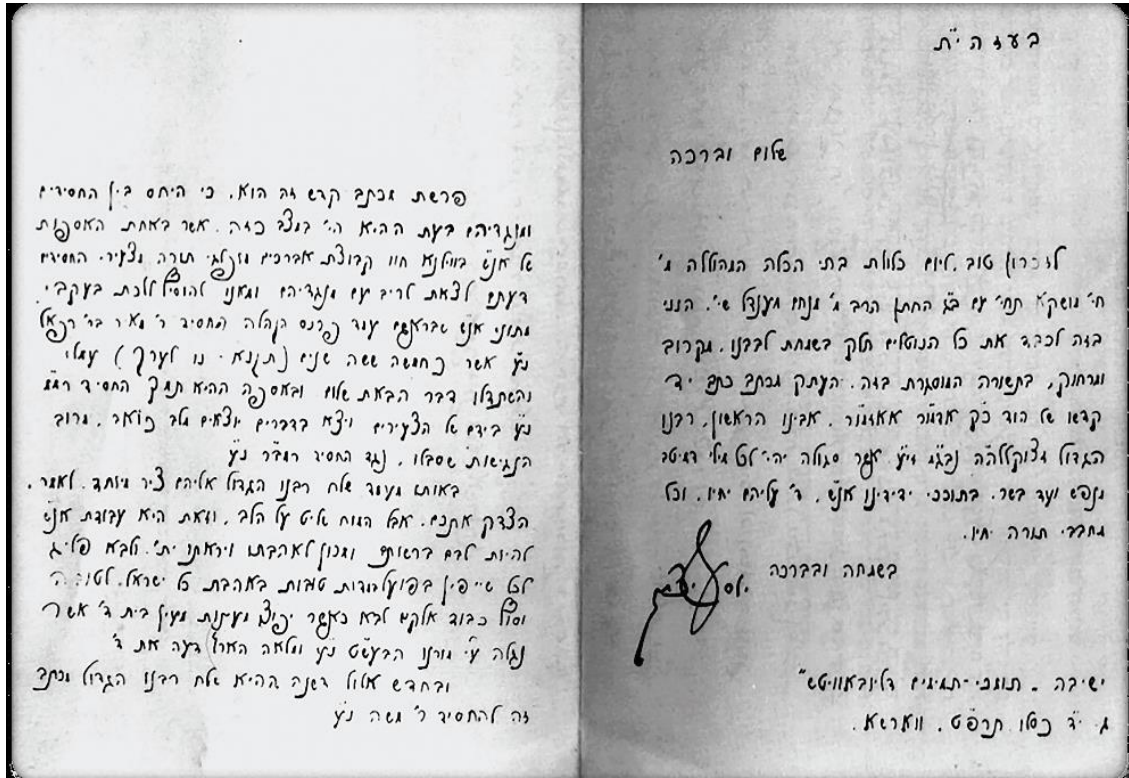 בעזה"ת
שלום וברכה
לזכרון טוב, ליום כלולת בתי הכלה המהוללה מ'
חי' מושקא תחי' עם ב"ג החתן הרב מ' מנחם מענדל שי'. הנני
בזה לכבד את כל הנוטלים חלק בשמחת לבבנו, מקרוב
ומרחוק, בתשורה המוסגרת בזה. העתק מכתב כתב יד
קדשו של הוד כ"ק אדמו"ר אאזמו"ר. אבינו הראשון, רבנו
הגדול מצוקללה"ה נבג"מ זי"ע אשר סגולה יהי' לכט מילי דמיטב
מנפש ועד בשר. בתוככי ידידינו אנ"ש, ד' עליהם יחיו, וכל
מחבבי תורה יחיו.
בשמחה ובברכה
ישיבה - תומכי-תמימים דליובאוויטש"
ג. י"ד כסלו תרפ"ט. ווארשא.
פרשת מכתב קדש זה הוא. כי היחס בין החסידים
ומנגדיהם בעת ההיא הי' במצב כזה. אשר באחת האספות
של אנ"ש בווילנא חוו קבוצת אברכים מקלטי תורה מצעירי החסידים
דעתם לצאת לריב עם מנגדיהם ומאנו להוסיף ללכת בעקבי
מתוני אנ"ש שבראשם עמד פרנס הקהלה החסיד ר' מאיר בר' רפאל
נ"ע אשר כחמשה ששה שנים (תקנא - נו לערך) עמלו
והשתדלו דבר הבאת שלום ובאספה ההיא תמך החסיד רמ"מ
נ"ע בידם של הצעירים ויצא בדברים יוצאים מלב כואב, מרוב
הנגישות שסבלו, נגד החסיד רמב"ר נ"ע
באותו מעמד שלח רבנו הגדול אליהם ציר מיוחד. לאמר,
הצדק אתכם. אבל המוח שליט על הלב, וזאת היא עבודת אנ"ש
להיות לבם ברשותם ומכון לאהבתו ויראתו ית', ולבא פליג
לכל שייפין בפועל ומדות טובות באהבת כל ישראל, לטובה
וסוף כבוד אלקים לבא כאשר יפוצו מעינות מעין בית ד' אשר
נגלה ע"י מורנו הבעש"ט נ"ע ומלאה הארץ דעה את ד'
ובחדש אלול דשנה ההיא שלח רבנו הגדול מכתב
זה להחסיד ר' משה נ"ע